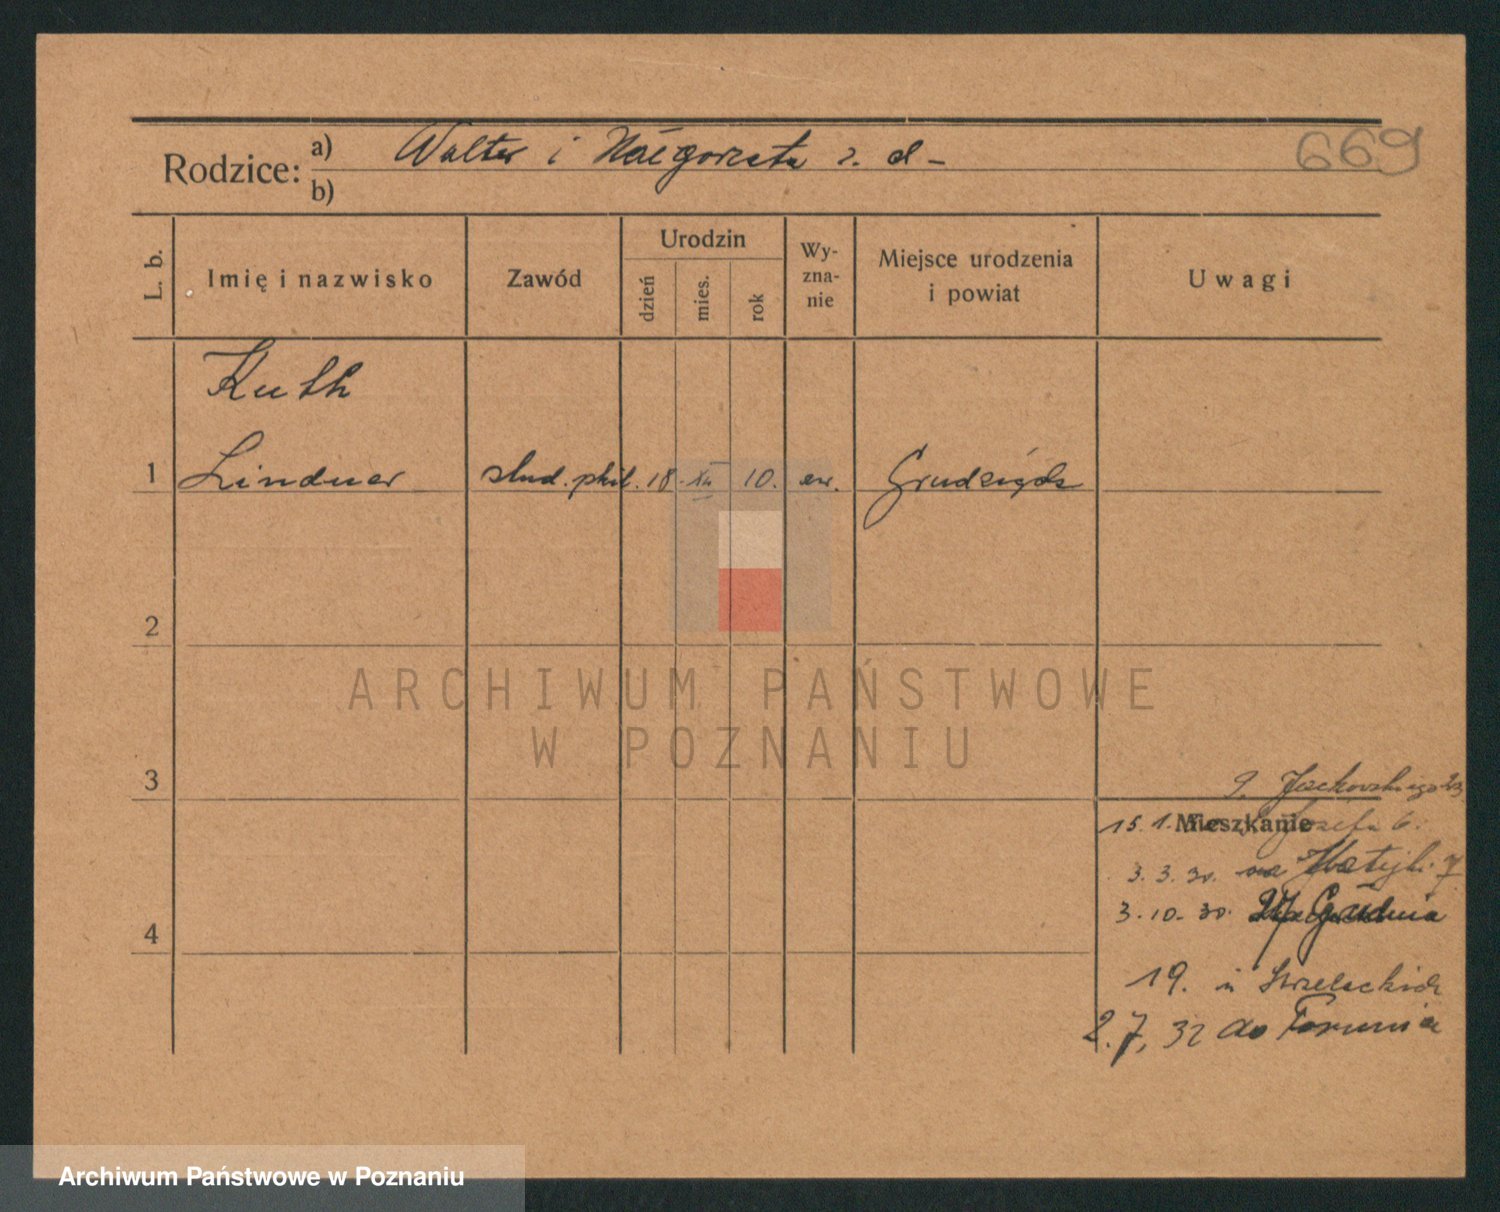 669
Rodzice: a) Walter i Małgorzata z. d –
b)
L. b. Imię i nazwisko Zawód Urodzin dzień mies. rok Wy-zna-nie Miejsce urodzenia i powiat Uwagi
Ruth
1 Lindner stud. phil. 18. XII 10. ew. Grudziądz
2
ARCHIWUM PAŃSTWOWE
W POZNANIU
3
9. Jackowskiego 23
Mieszkanie
15. 1. Józefa 6.
3. 3. 30. na Matejki 7
3. 10. 30. 27 Grudnia
4
19. u Strzeleckich
2. 7, 32 do Torunia
Archiwum Państwowe w Poznaniu